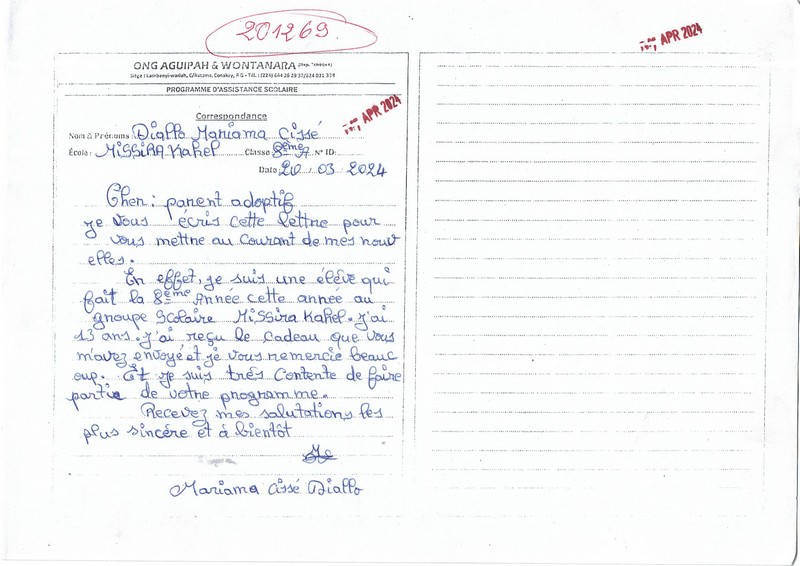 201269
ONG AGUIPAH & WONTANARA
PROGRAMME D'ASSISTANCE SCOLAIRE
APR 2024
APR 2024
Correspondance
Nom & Prénoms Diallo Mariama Cissé
École: MiSSiRA KaheL Classe 8ème A N° ID:
Date: 20 / 03 2024
Cher: parent adoptif
je vous écris cette lettre pour
vous mettre au courant de mes nouv
elles.
En effet, je suis une élève qui
fait la 8ème Année cette année au
groupe Scolaire MiSSira Kahel. j'ai
13 ans. j'ai reçu le cadeau que vous
m'avez envoyé et je vous remercie beauc
oup. Et je suis trés contente de faire
partie de votre programme.
Recevez mes salutations les
plus sincére et à bientôt
Mariama Cissé Diallo